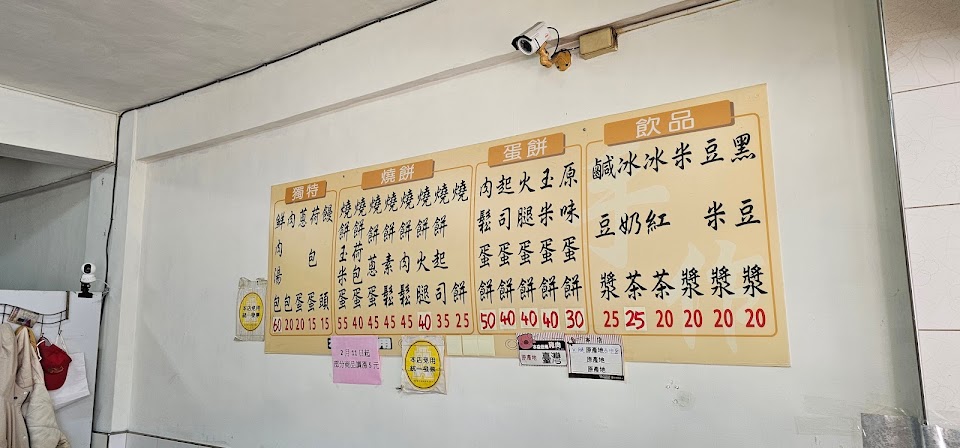 飲品
黑豆漿 20
豆米漿 20
米漿 20
冰紅茶 20
冰奶茶 25
鹹豆漿 25
蛋餅
原味蛋餅 30
玉米蛋餅 40
火腿蛋餅 40
起司蛋餅 40
肉鬆蛋餅 50
燒餅
燒餅 25
燒餅起司 35
燒餅火腿 40
燒餅肉鬆 45
燒餅素鬆 45
燒餅蔥蛋 45
燒餅荷包蛋 40
燒餅玉米蛋 55
獨特
饅頭 15
荷包蛋 15
蔥蛋 20
肉包 20
鮮肉湯包 60
本店使用
統一發票
2月11日起
部分商品調漲5元
本店使用
統一發票
原產地 臺灣
原產地
原產地
原產地